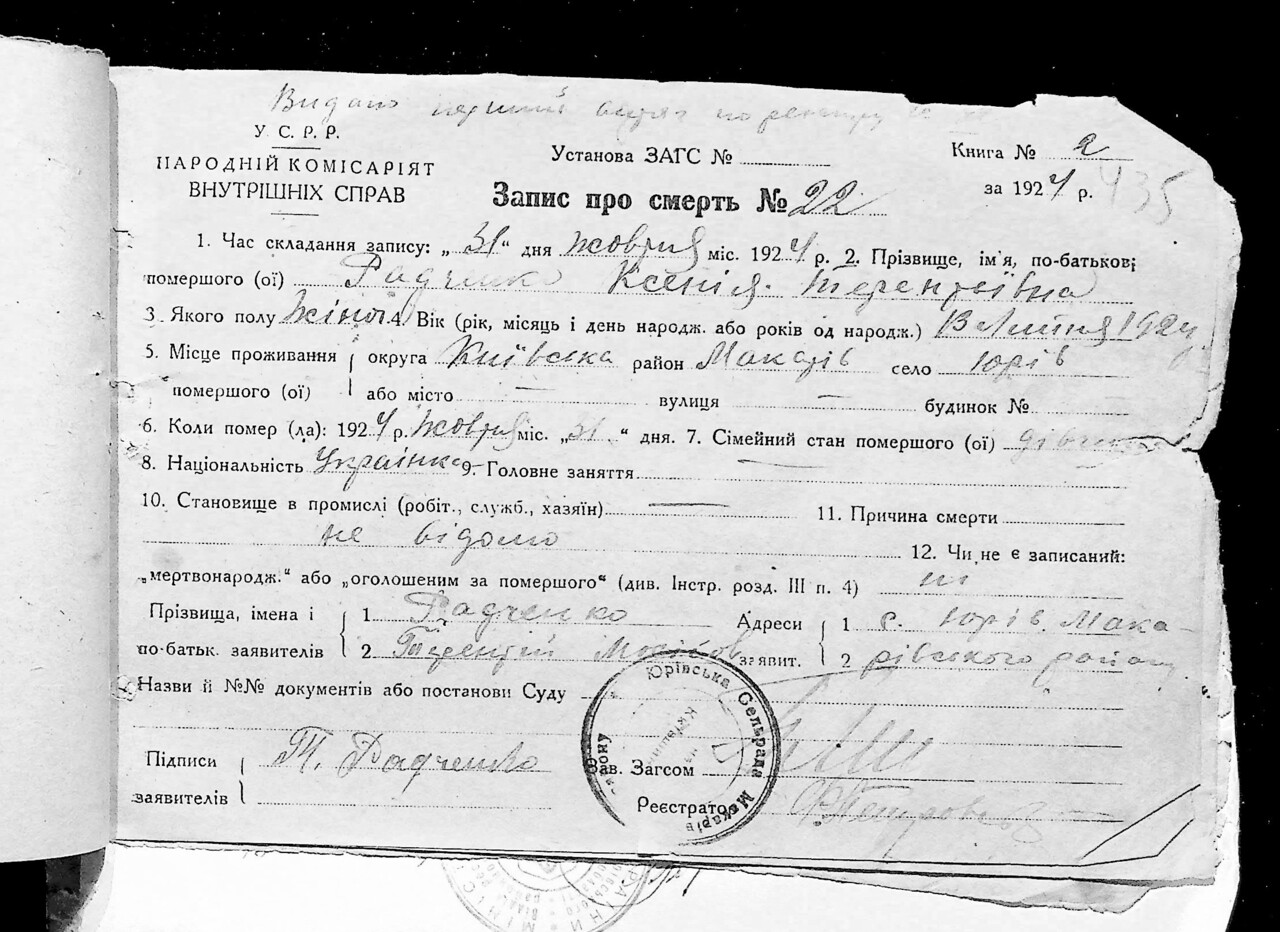 Видано перший витяг по реєстру
У. С. Р. Р.
НАРОДНІЙ КОМІСАРІЯТ
ВНУТРІШНІХ СПРАВ
Установа ЗАГС №
Книга № 2
за 1924 р. 435
Запис про смерть № 22
1. Час складання запису: „31“ дня Жовтня міс. 1924 р. 2. Прізвище, ім'я, по-батькові
помершого (ої) Радченко Ксенія Терентіївна
3. Якого полу Жіноч 4. Вік (рік, місяць і день народж. або років од народж.) 8 Липня 1924
5. Місце проживання округа Київська район Макарів село Юрів
помершого (ої) або місто — вулиця — будинок №
6. Коли помер (ла): 1924 р. Жовтня міс. „31“ дня. 7. Сімейний стан помершого (ої) дівчина
8. Національність Українка 9. Головне заняття —
10. Становище в промислі (робіт., служб., хазяїн) — 11. Причина смерти
не відомо 12. Чи не є записаний:
„мертвонародж.“ або „оголошеним за помершого“ (див. Інстр. розд. III п. 4) ні
Прізвища, імена і 1 Радченко Адреси 1 с. Юрів Мака-
по-батьк. заявителів 2 Терентій заявит. 2 рівського району
Назви й №№ документів або постанови Суду
Підписи Т. Радченко
заявителів
Зав. Загсом
Реєстратор
Юрівська Сельрада Макарів